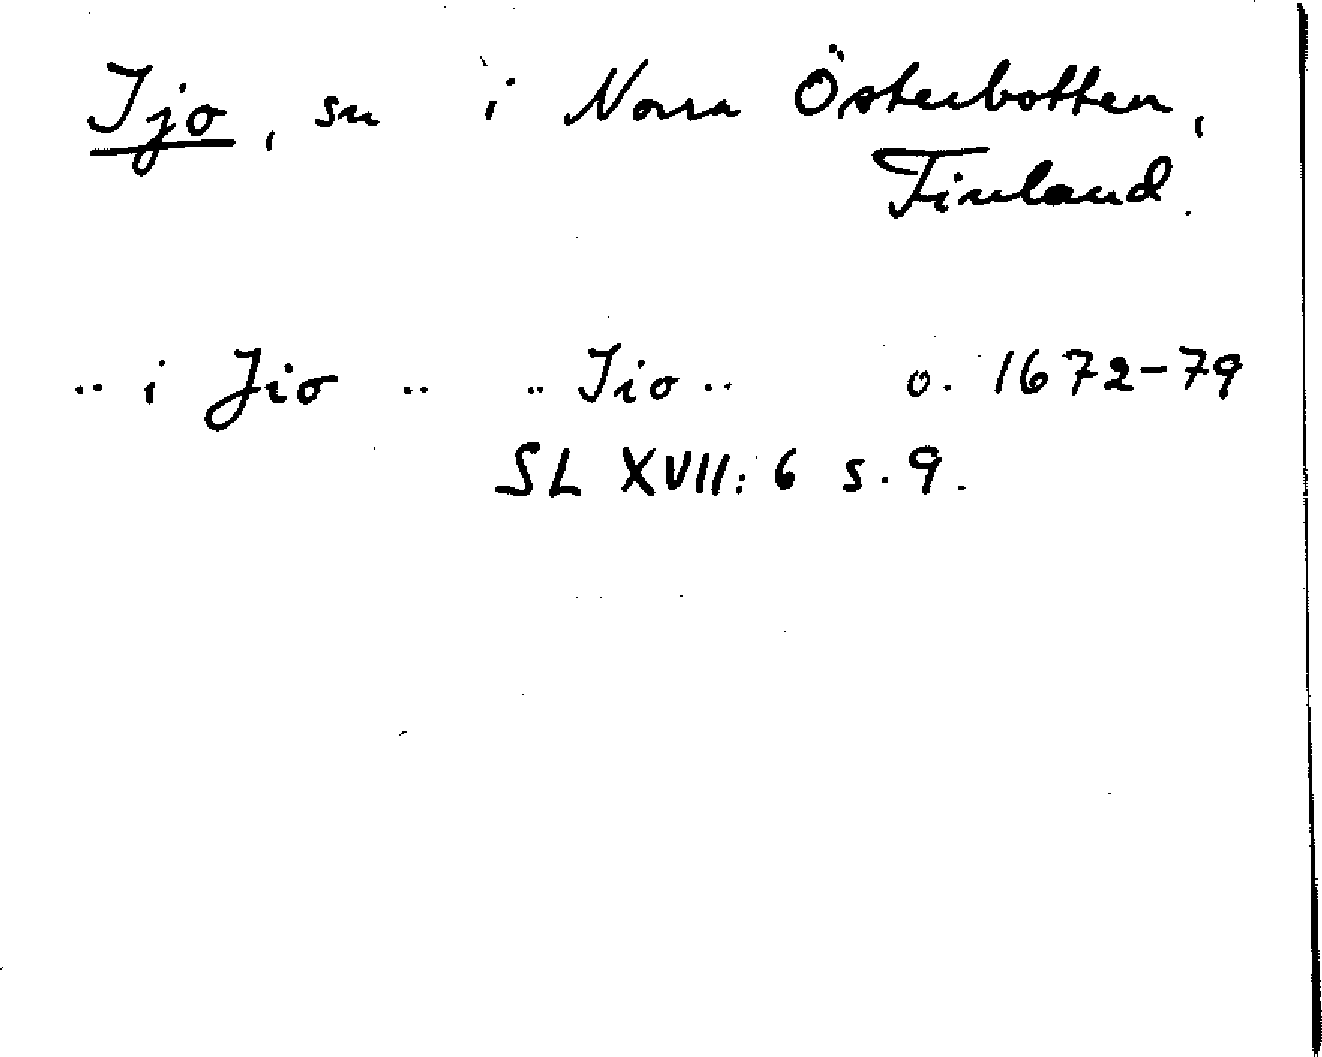 Ijo, sn i Norra Österbotten,
Finland.
.. i Jio .. .. Iio .. o. 1672-79
SL XVII: 6 s. 9.